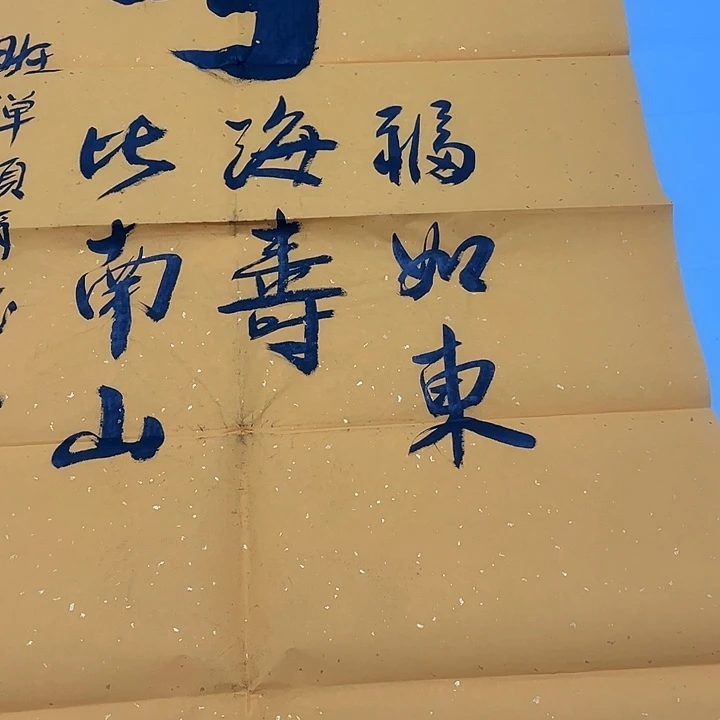 福如東
海壽
比南山